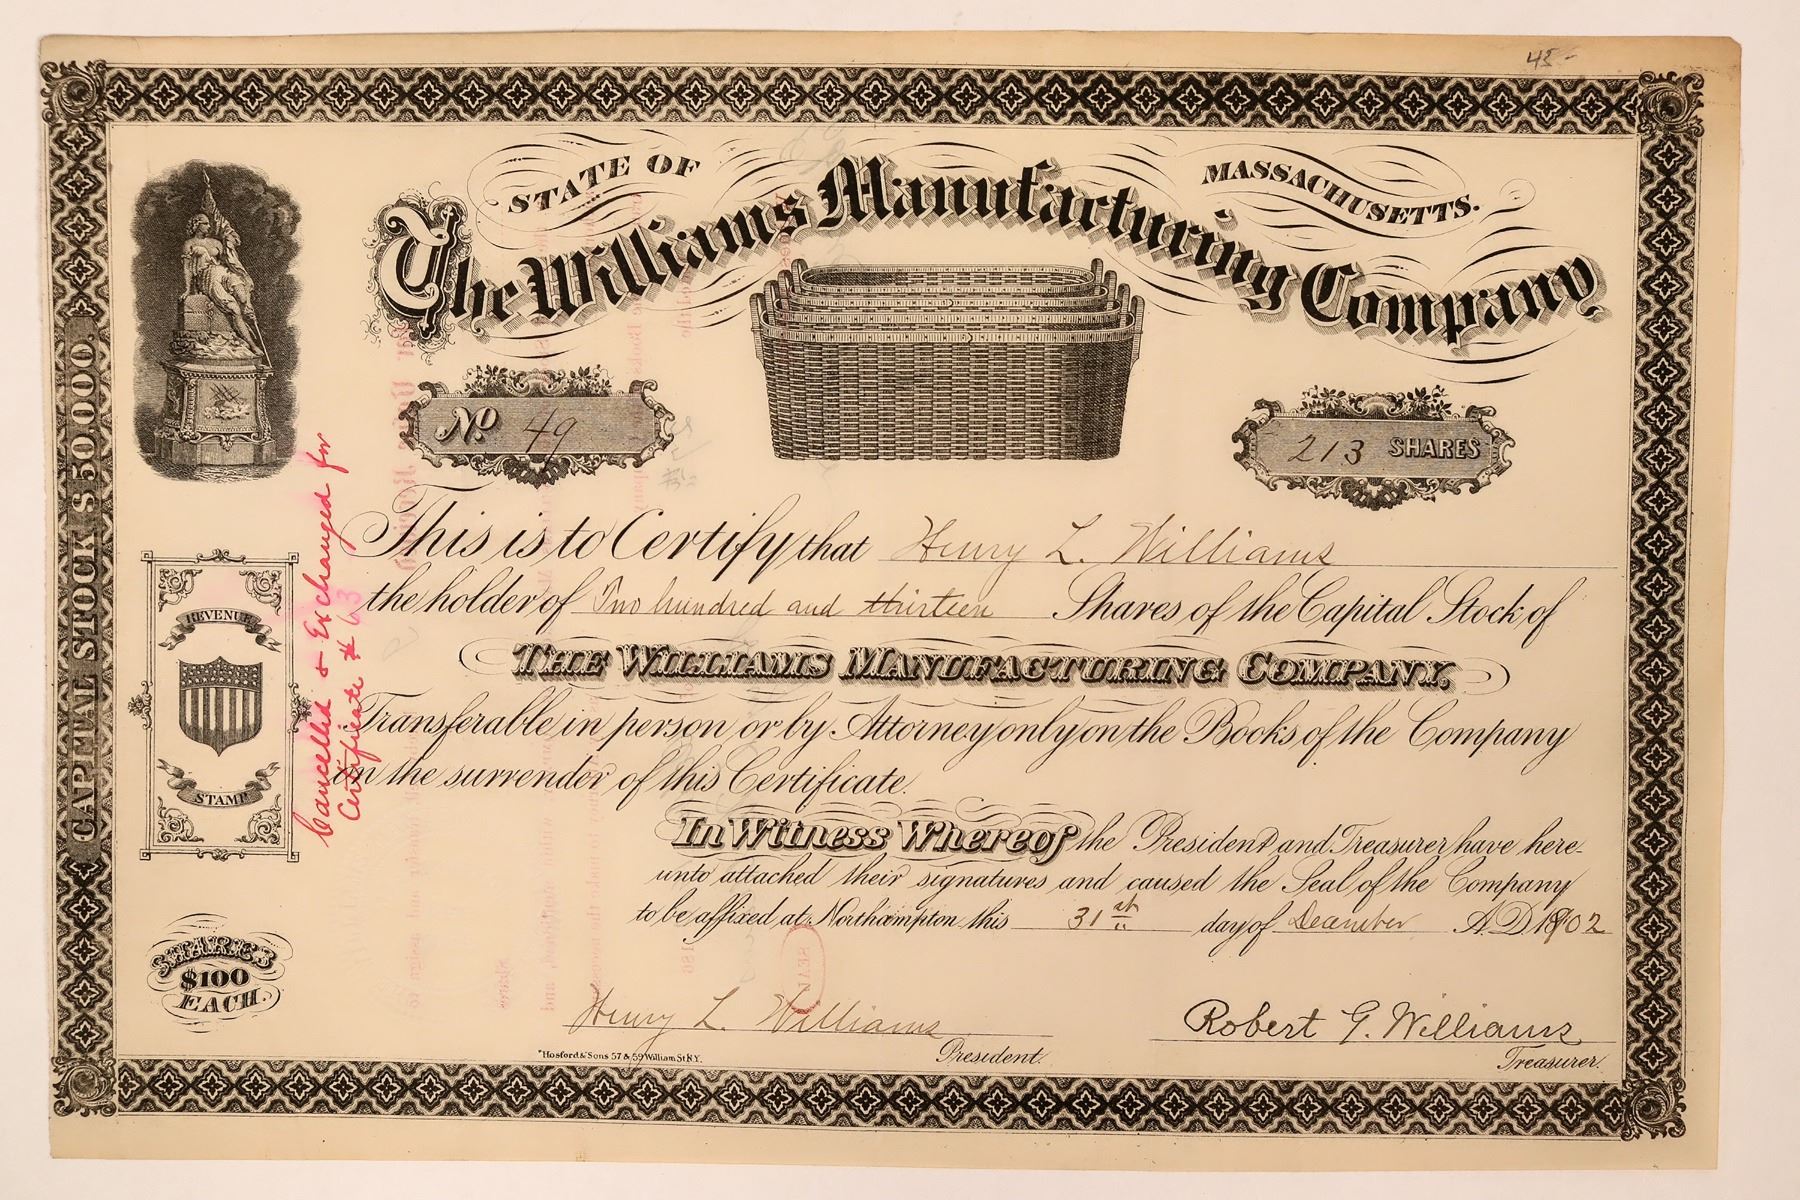 45-
STATE OF MASSACHUSETTS.
The Williams Manufacturing Company
No. 49
213 SHARES
This is to Certify that Henry L. Williams
the holder of Two hundred and thirteen Shares of the Capital Stock of
THE WILLIAMS MANUFACTURING COMPANY,
Transferable in person or by Attorney only on the Books of the Company
on the surrender of this Certificate.
In Witness Whereof the President and Treasurer have here-
unto attached their signatures and caused the Seal of the Company
to be affixed at Northampton this 31st day of December A.D. 1902
Henry L. Williams
President.
Robert G. Williams
Treasurer.
Hosford & Sons 57 & 59 William St N.Y.
CAPITAL STOCK $50,000.
REVENUE
STAMP
Cancelled & Exchanged for
Certificate # 63
SHARES
$100
EACH.
SEAL